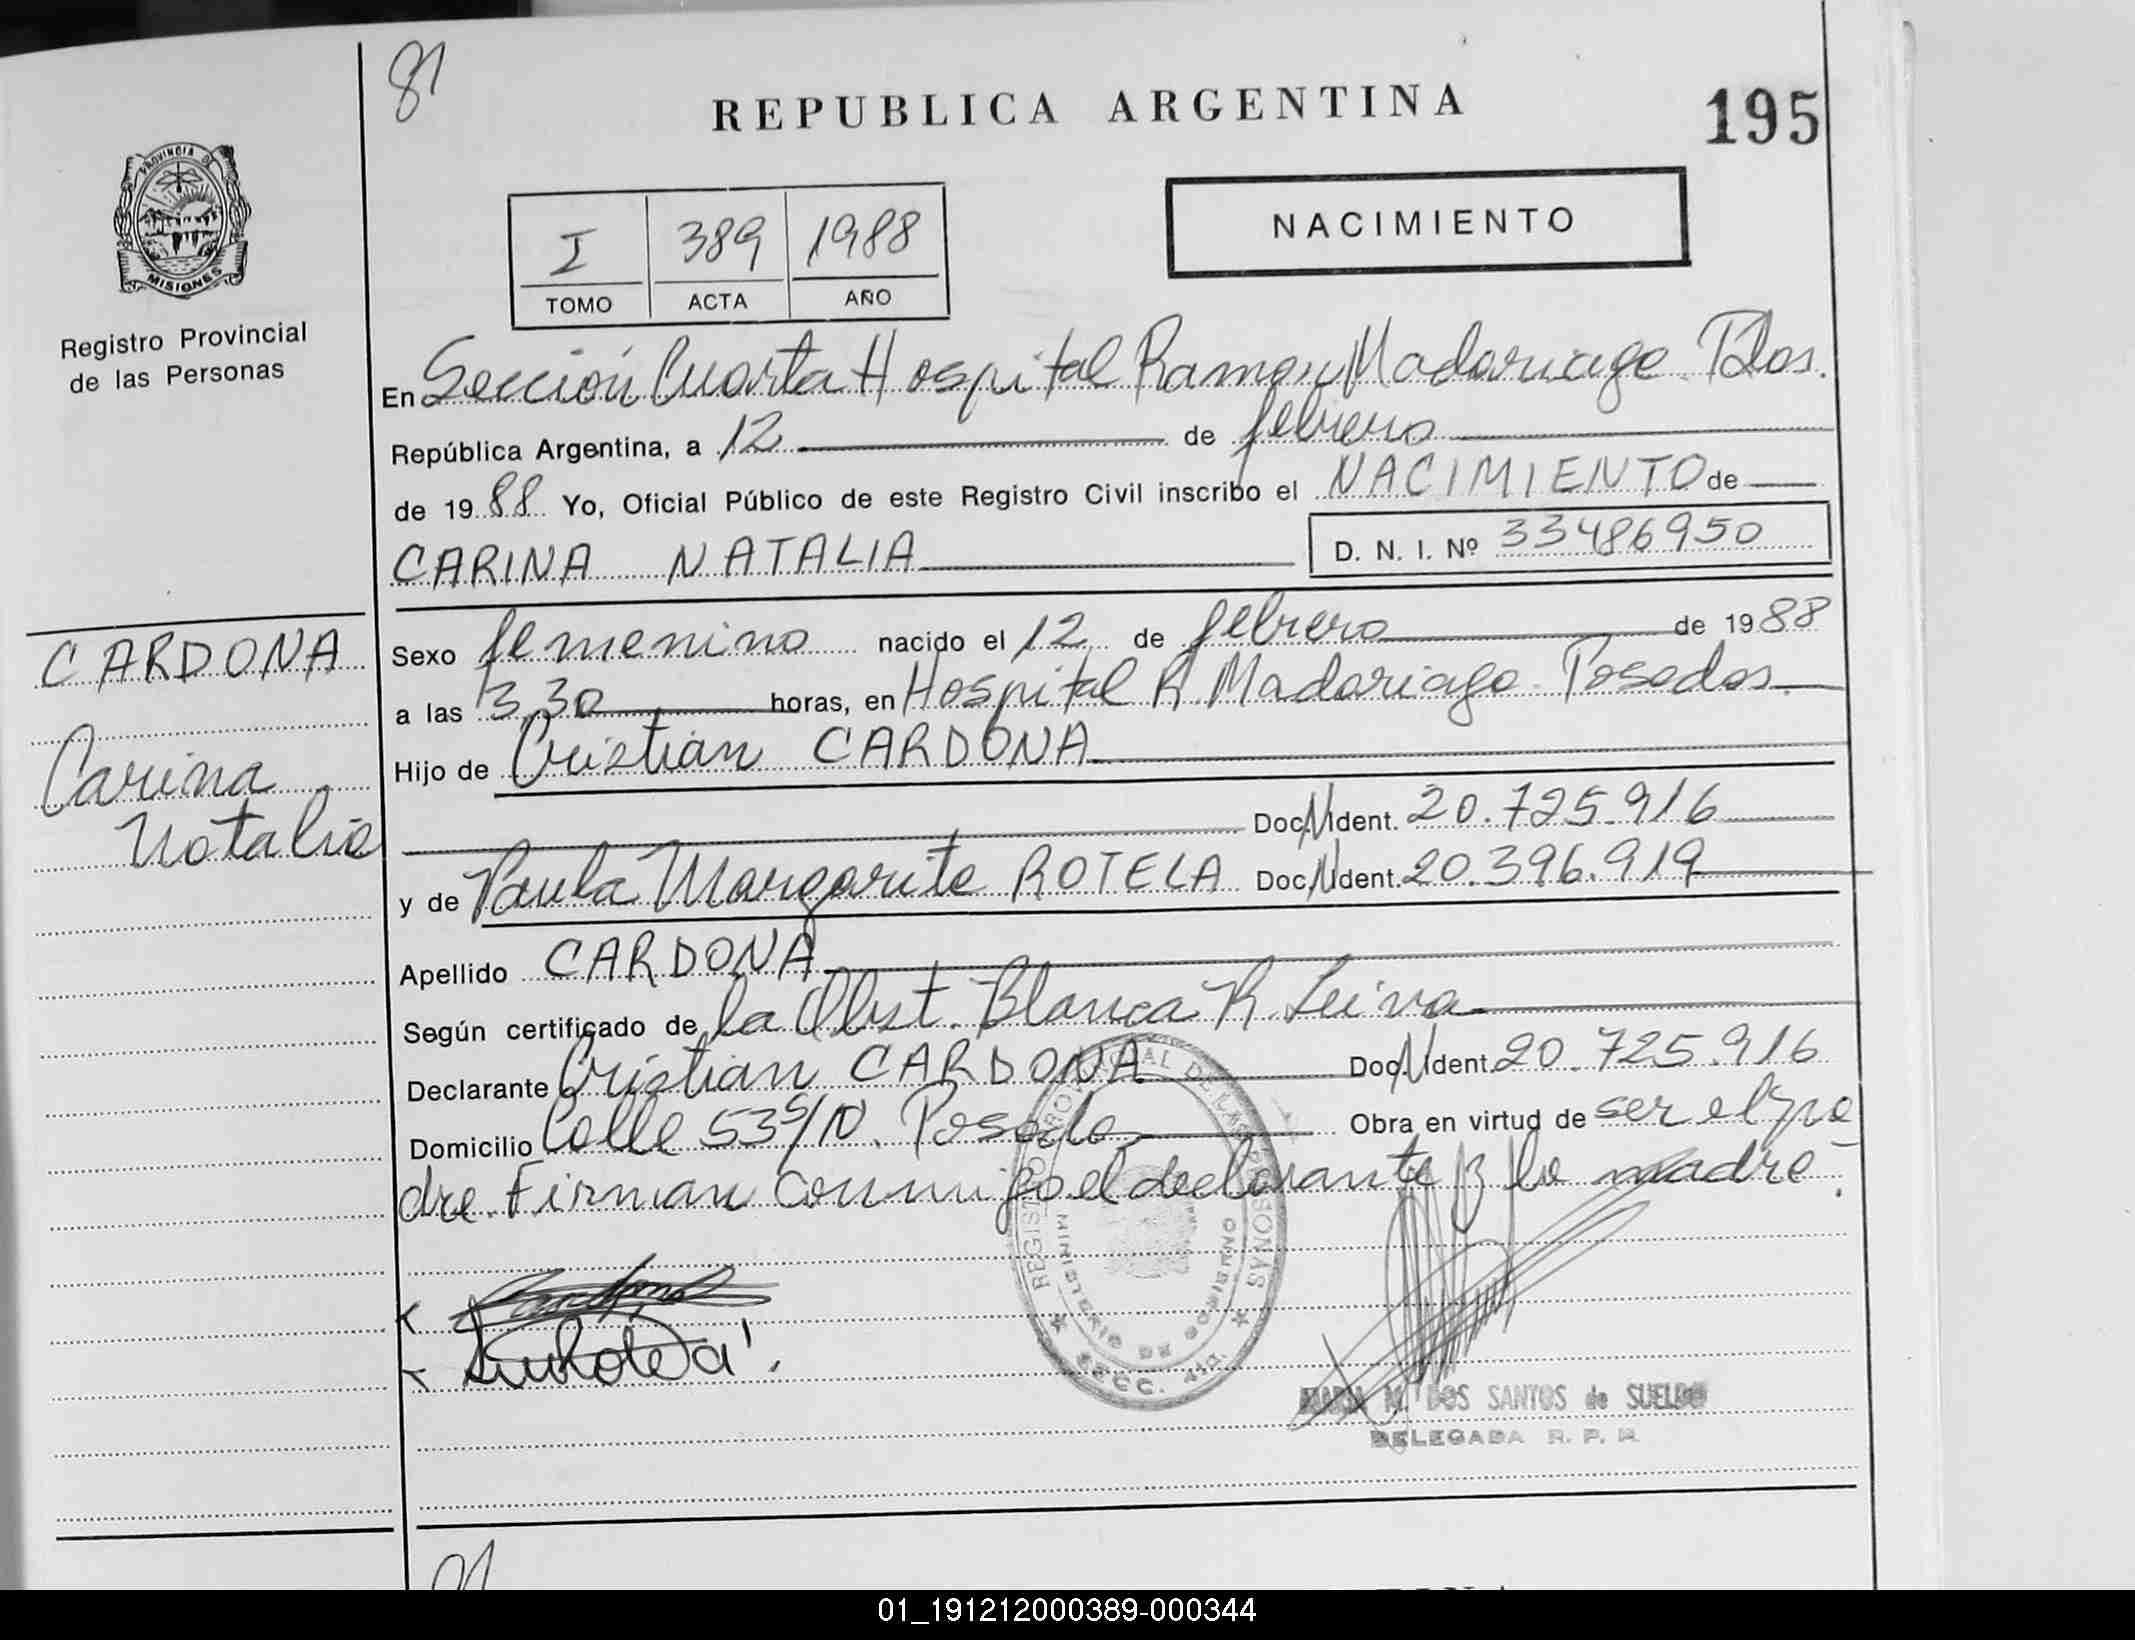 81
REPUBLICA ARGENTINA
195
PROVINCIA DE
MISIONES
Registro Provincial
de las Personas
I 389 1988
TOMO ACTA AÑO
NACIMIENTO
En Sección Cuarta Hospital Ramon Madariaga. Pdos.
República Argentina, a 12 de febrero
de 1988 Yo, Oficial Público de este Registro Civil inscribo el NACIMIENTO de
CARINA NATALIA D. N. I. Nº 33486950
CARDONA
Carina
Natalia
Sexo femenino nacido el 12 de febrero de 1988
a las 3,30 horas, en Hospital R. Madariaga. Posadas.
Hijo de Cristian CARDONA
Doc. N. Ident. 20.725.916
y de Paula Margarita ROTELA Doc. N. Ident. 20.396.919
Apellido CARDONA
Según certificado de la Obst. Blanca R. Leiva
Declarante Cristian CARDONA Doc. N. Ident. 20.725.916
Domicilio Calle 53 S/N. Posadas Obra en virtud de ser el pa
dre. Firman conmigo el declarante y la madre.
REGISTRO PROVINCIAL DE LAS PERSONAS
MINISTERIO DE GOBIERNO
SECC. 4ta.
MARIA M. DOS SANTOS de SUELDO
DELEGADA R. P. M.
01_191212000389-000344